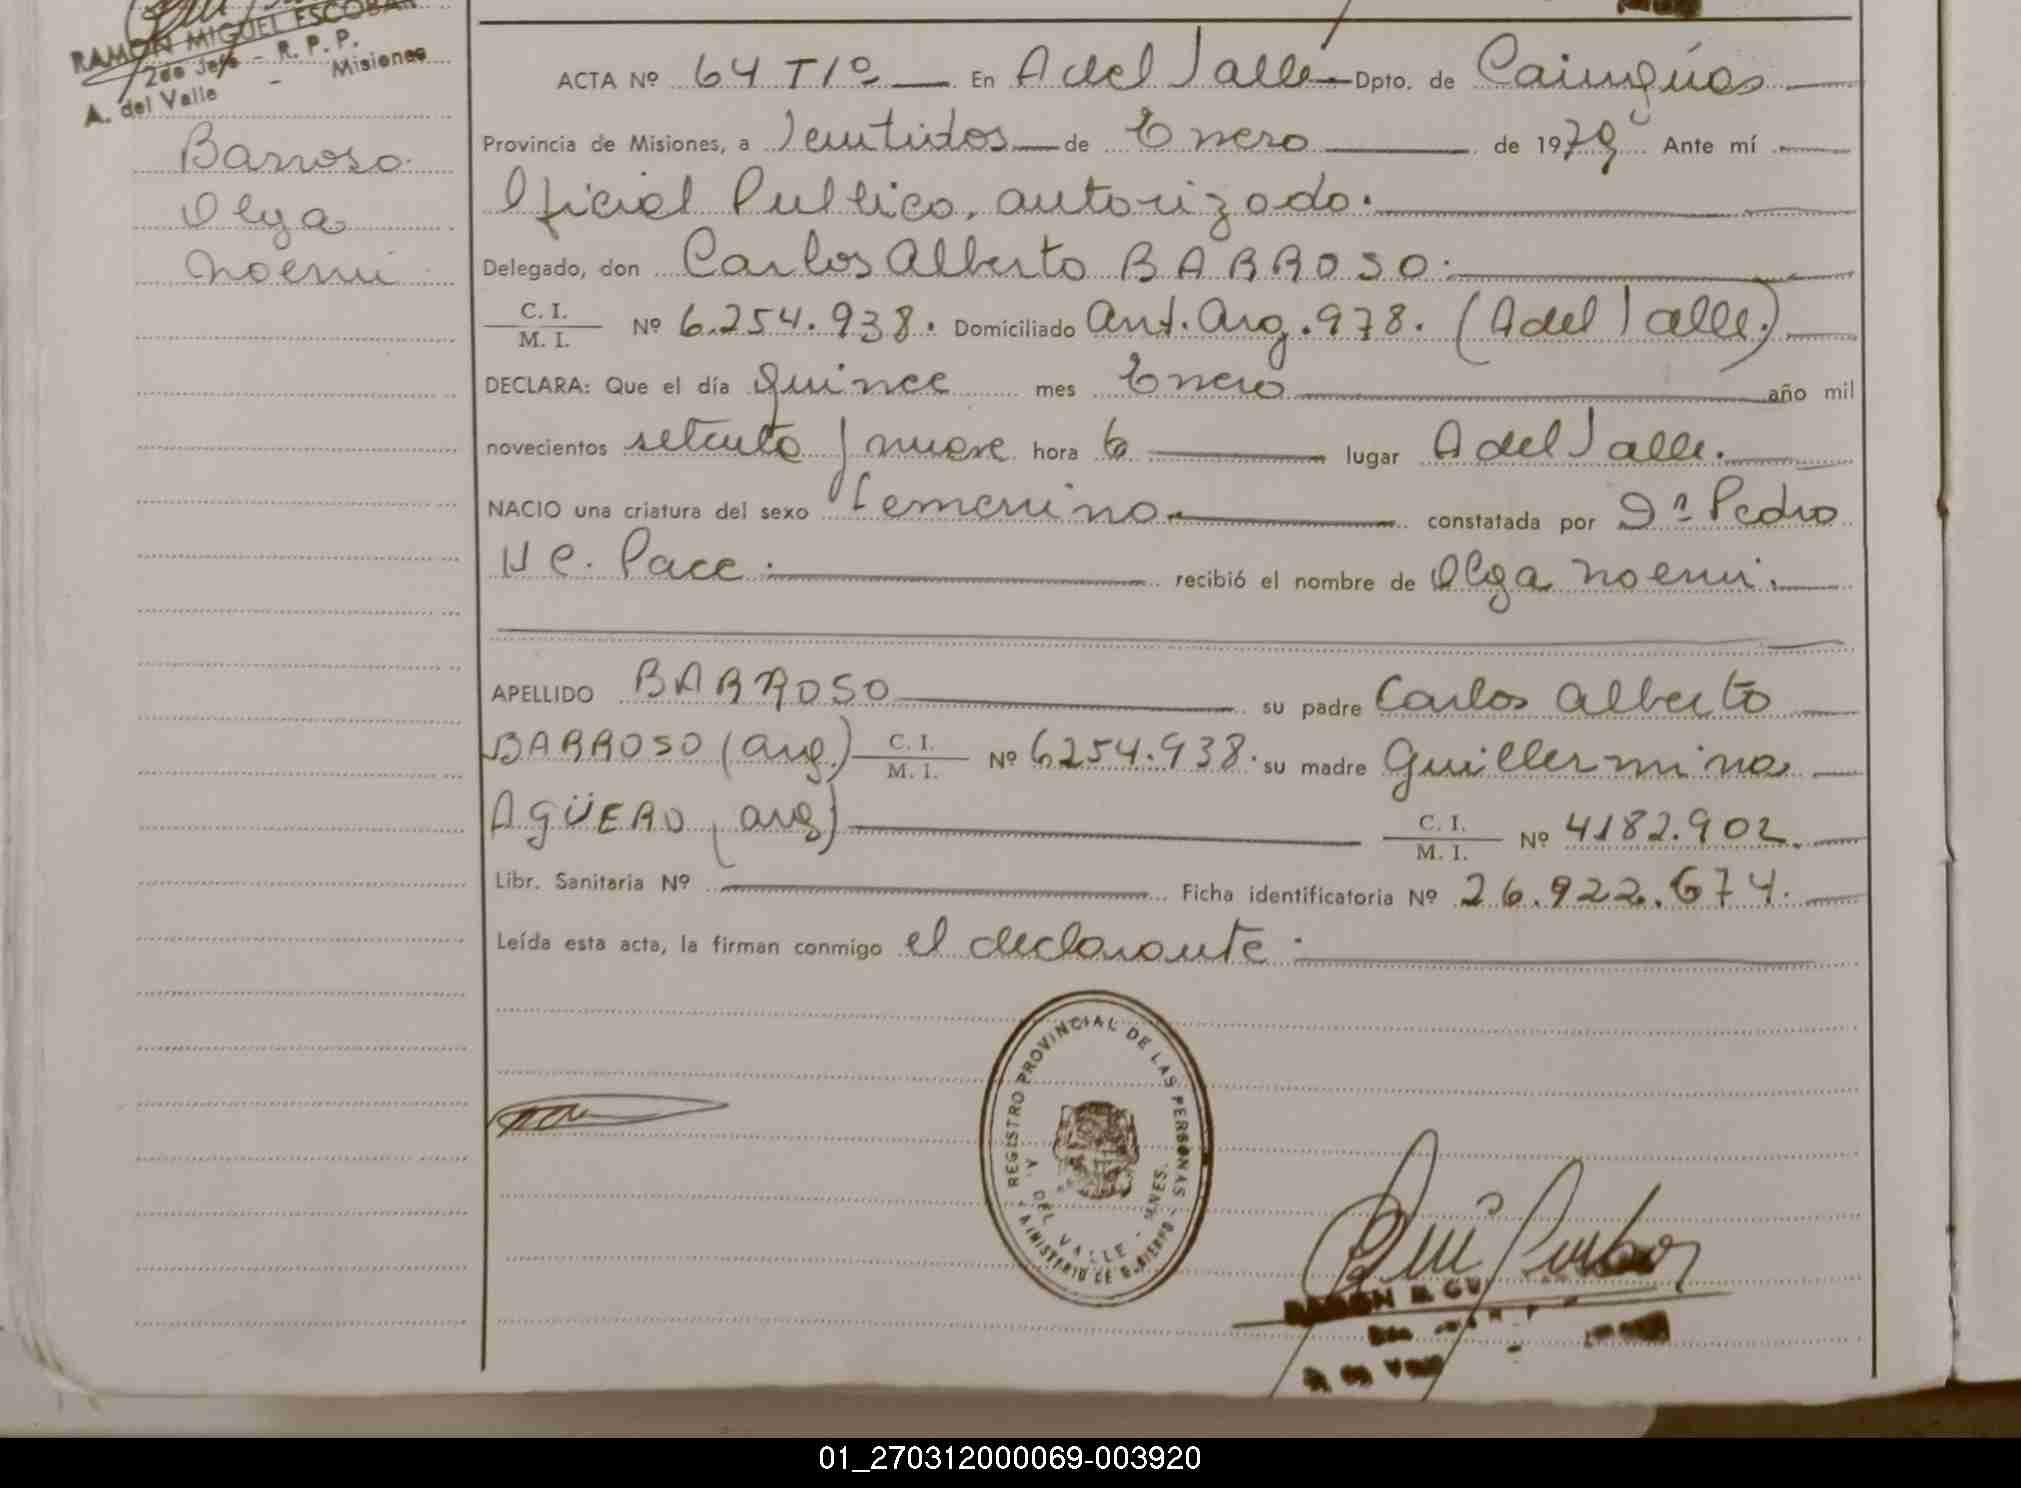 RAMON MIGUEL ESCOBAR
2do Jefe - R. P. P.
A. del Valle - Misiones
Barroso
Olga
Noemi
ACTA Nº 64 T1º En A del Valle Dpto. de Cainguas
Provincia de Misiones, a Veintidos de Enero de 1979 Ante mí
Oficial Publico, autorizado.
Delegado, don Carlos Alberto BARROSO.
C. I.
M. I. Nº 6.254.938. Domiciliado Ant. Arg. 978. (A del Valle.)
DECLARA: Que el día quince mes Enero año mil
novecientos setenta y nueve hora 6 lugar A del Valle.
NACIO una criatura del sexo femenino constatada por Dº Pedro
H C. Pace. recibió el nombre de Olga Noemi.
APELLIDO BARROSO su padre Carlos Alberto
BARROSO (arg.) C. I. M. I. Nº 6254.938. su madre Guillermina
AGÜERO (arg) C. I. M. I. Nº 4182.902.
Libr. Sanitaria Nº Ficha identificatoria Nº 26.922.674.
Leída esta acta, la firman conmigo el declarante.
REGISTRO PROVINCIAL DE LAS PERSONAS
DEL VALLE
01_270312000069-003920